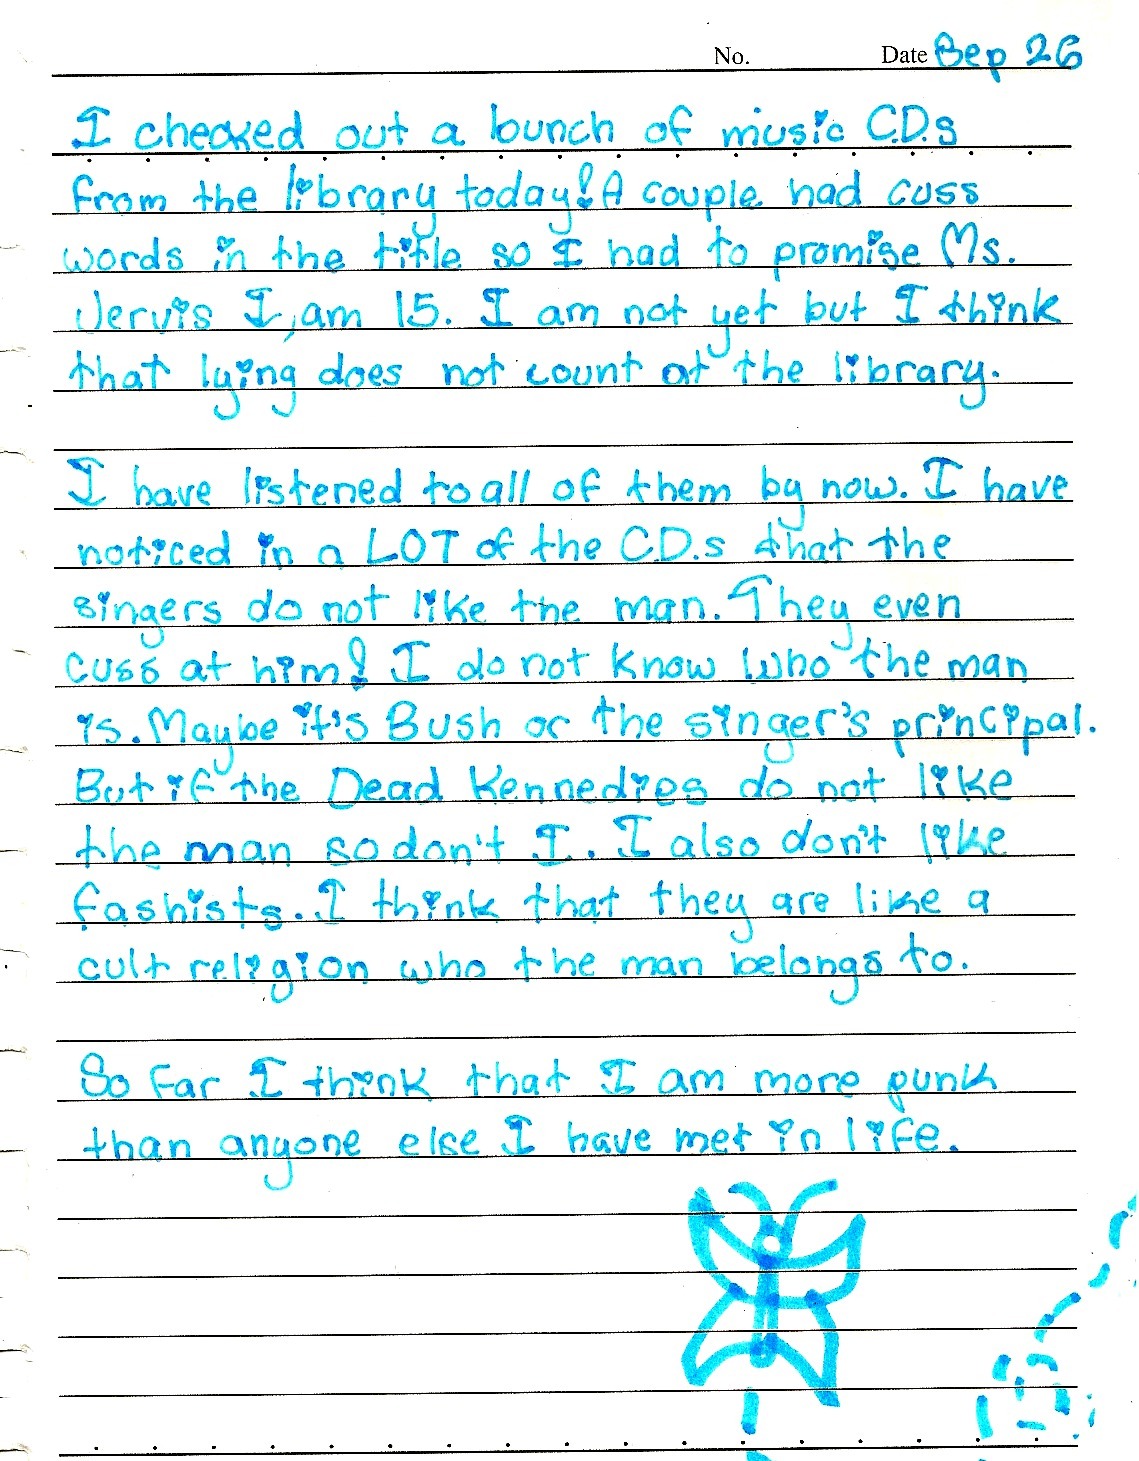 No. Date Sep 26
I checked out a bunch of music C.D.s
from the library today! A couple had cuss
words in the title so I had to promise Ms.
Jervis I am 15. I am not yet but I think
that lying does not count at the library.
I have listened to all of them by now. I have
noticed in a LOT of the C.D.s that the
singers do not like the man. They even
cuss at him! I do not know who the man
is. Maybe it's Bush or the singer's principal.
But if the Dead Kennedies do not like
the man so don't I. I also don't like
fashists. I think that they are like a
cult religion who the man belongs to.
So far I think that I am more punk
than anyone else I have met in life.